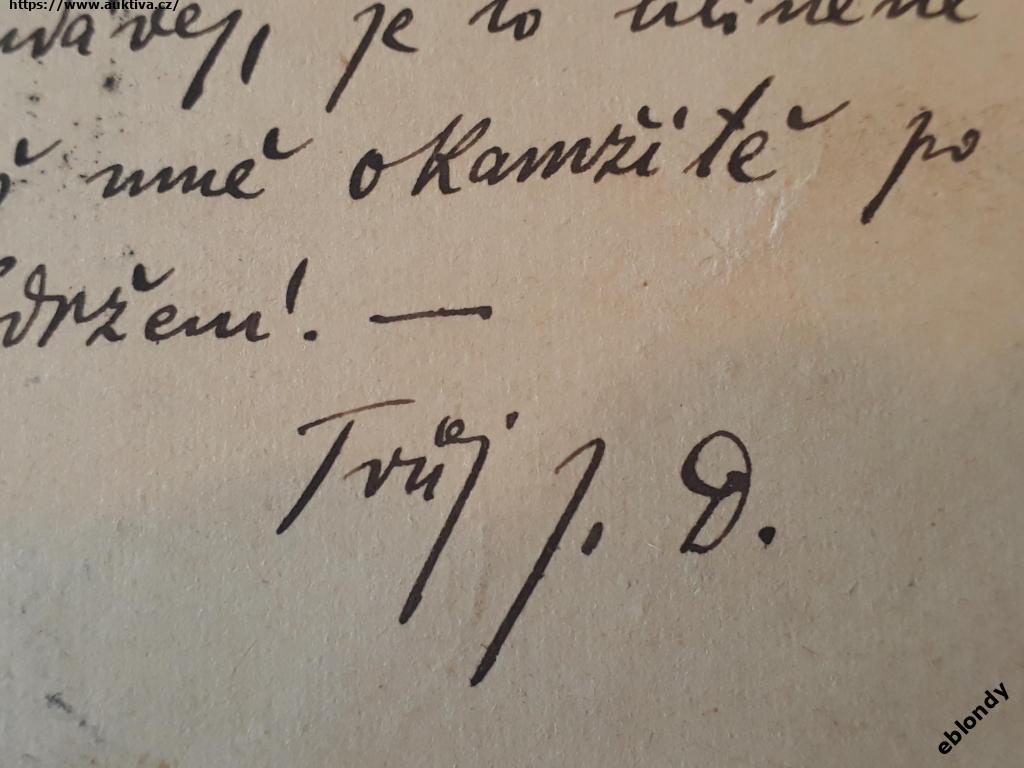 https://www.auktiva.cz/
je to
mně okamžitě po
držení! —
Tvůj J. D.
eblondy